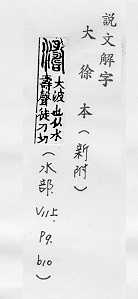 說文解字
大徐本（新附）
濤 大波也从水
壽聲徒刀切
（水部．VII上．pg．b10）